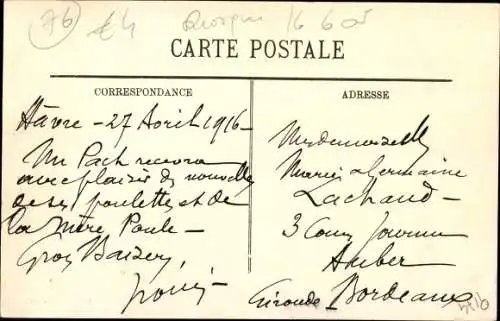 76
£4
16 6 05
CARTE POSTALE
CORRESPONDANCE
ADRESSE
Hâvre – 27 Avril 1916 –
Mr Pach recevra
avec plaisir des nouvelles
de ses poulettes et de
la Mère Poule –
Gros Baisers,
Mesdemoiselles
Marie & Germaine
Lachaud –
3 Cours Journu
Auber
Bordeaux
Gironde